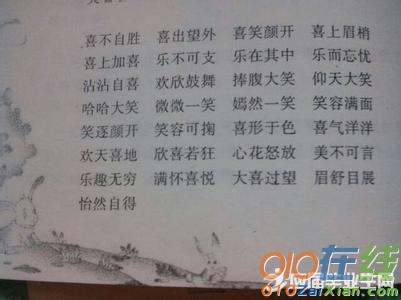 喜不自胜 喜出望外 喜笑颜开 喜上眉梢
喜上加喜 乐不可支 乐在其中 乐而忘忧
沾沾自喜 欢欣鼓舞 捧腹大笑 仰天大笑
哈哈大笑 微微一笑 嫣然一笑 笑容满面
笑逐颜开 笑容可掬 喜形于色 喜气洋洋
欢天喜地 欣喜若狂 心花怒放 美不可言
乐趣无穷 满怀喜悦 大喜过望 眉舒目展
怡然自得
910在线
910zaiXian.com